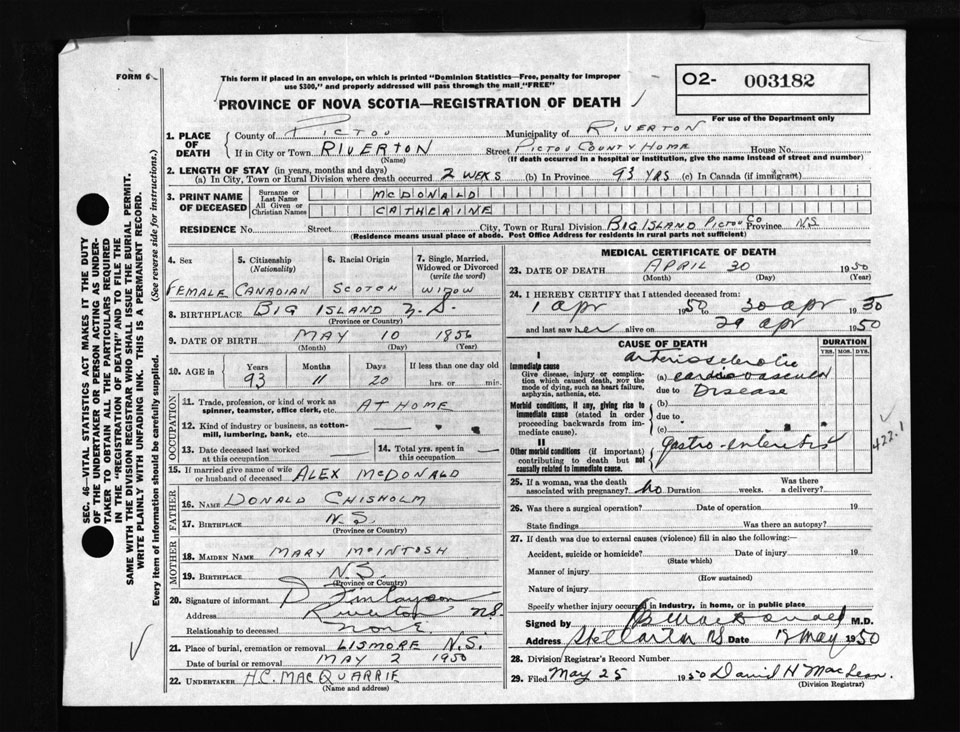 FORM 6
This form if placed in an envelope, on which is printed "Dominion Statistics—Free, penalty for improper
use $300," and properly addressed will pass through the mail "FREE"
PROVINCE OF NOVA SCOTIA—REGISTRATION OF DEATH
O2- 003182
For use of the Department only
SEC. 46—VITAL STATISTICS ACT MAKES IT THE DUTY
OF THE UNDERTAKER OR PERSON ACTING AS UNDER-
TAKER TO OBTAIN ALL THE PARTICULARS REQUIRED
IN THE "REGISTRATION OF DEATH" AND TO FILE THE
SAME WITH THE DIVISION REGISTRAR WHO SHALL ISSUE THE BURIAL PERMIT.
WRITE PLAINLY WITH UNFADING INK. THIS IS A PERMANENT RECORD.
Every item of information should be carefully supplied. (See reverse side for instructions.)
1. PLACE OF DEATH
County of PICTOU Municipality of RIVERTON
If in City or Town RIVERTON Street PICTOU COUNTY HOME House No.
(Name) (If death occurred in a hospital or institution, give the name instead of street and number)
2. LENGTH OF STAY (in years, months and days)
(a) In City, Town or Rural Division where death occurred 2 WEKS (b) In Province 93 YRS (c) In Canada (if immigrant)
3. PRINT NAME OF DECEASED
Surname or Last Name MCDONALD
All Given or Christian Names CATHERINE
RESIDENCE No. Street City, Town or Rural Division BIG ISLAND PICTOU CO Province N.S.
(Residence means usual place of abode. Post Office Address for residents in rural parts not sufficient)
4. Sex 5. Citizenship (Nationality) 6. Racial Origin 7. Single, Married, Widowed or Divorced (write the word)
FEMALE CANADIAN SCOTCH WIDOW
8. BIRTHPLACE BIG ISLAND N.S.
(Province or Country)
9. DATE OF BIRTH MAY 10 1856
(Month) (Day) (Year)
10. AGE in Years Months Days If less than one day old
93 11 20 hrs. or min.
OCCUPATION
11. Trade, profession, or kind of work as spinner, teamster, office clerk, etc. AT HOME
12. Kind of industry or business, as cotton-mill, lumbering, bank, etc.
13. Date deceased last worked at this occupation 14. Total yrs. spent in this occupation
15. If married give name of wife or husband of deceased ALEX MCDONALD
FATHER
16. NAME DONALD CHISHOLM
17. BIRTHPLACE N.S.
(Province or Country)
MOTHER
18. MAIDEN NAME MARY MCINTOSH
19. BIRTHPLACE N.S.
(Province or Country)
20. Signature of informant D Finlayson
Address Riverton N.S.
Relationship to deceased NONE
21. Place of burial, cremation or removal LISMORE N.S.
Date of burial or removal MAY 2 1950
22. UNDERTAKER H.C. MACQUARRIE
(Name and address)
MEDICAL CERTIFICATE OF DEATH
23. DATE OF DEATH APRIL 30 1950
(Month) (Day) (Year)
24. I HEREBY CERTIFY that I attended deceased from:
1 apr 1950 to 30 apr 1950
and last saw her alive on 29 apr 1950
CAUSE OF DEATH DURATION
YRS. MOS. DYS.
I
Immediate cause
Give disease, injury or complication which caused death, not the mode of dying, such as heart failure, asphyxia, asthenia, etc.
arteriosclerotic
(a) cardiovascular
due to Disease
Morbid conditions, if any, giving rise to immediate cause (stated in order proceeding backwards from immediate cause).
(b)
due to
(c)
II
Other morbid conditions (if important) contributing to death but not causally related to immediate cause.
gastro-enteritis
422.1
25. If a woman, was the death associated with pregnancy? No Duration weeks. Was there a delivery?
26. Was there a surgical operation? Date of operation 19
State findings Was there an autopsy?
27. If death was due to external causes (violence) fill in also the following:—
Accident, suicide or homicide? Date of injury 19
(State which)
Manner of injury
(How sustained)
Nature of injury
Specify whether injury occurred in industry, in home, or in public place
Signed by MacDonald M.D.
Address Stellarton NS Date 12 May 1950
28. Division Registrar's Record Number
29. Filed May 25 1950 David H MacLean
(Division Registrar)